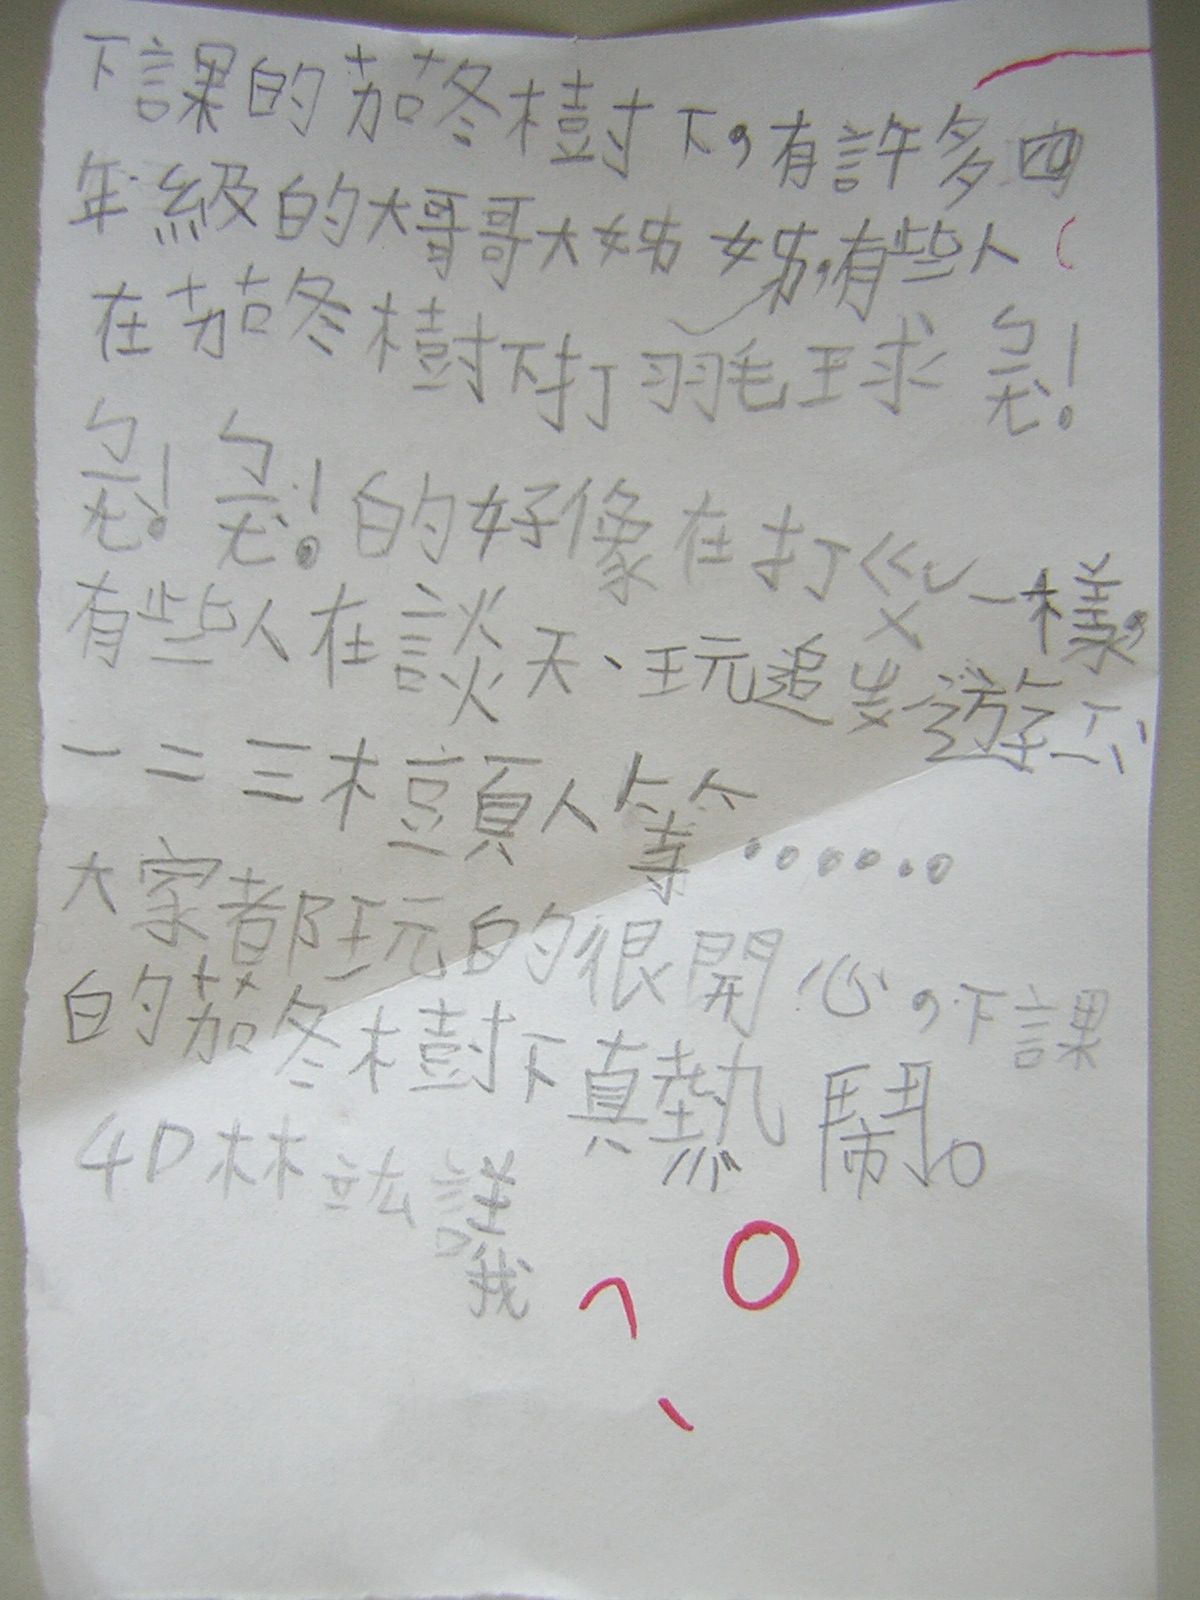 下課的茄冬樹下,有許多四
年級的大哥哥大姊姊,有些人
在茄冬樹下打羽毛球ㄅㄧㄤ!
ㄅㄧㄤ!ㄅㄧㄤ!的好像在打ㄍㄨˇ一樣,
有些人在談天、玩追步遊示
一二三木頭人等......
大家都玩的很開心,下課
的茄冬樹下真熱鬧。
4D林竑議